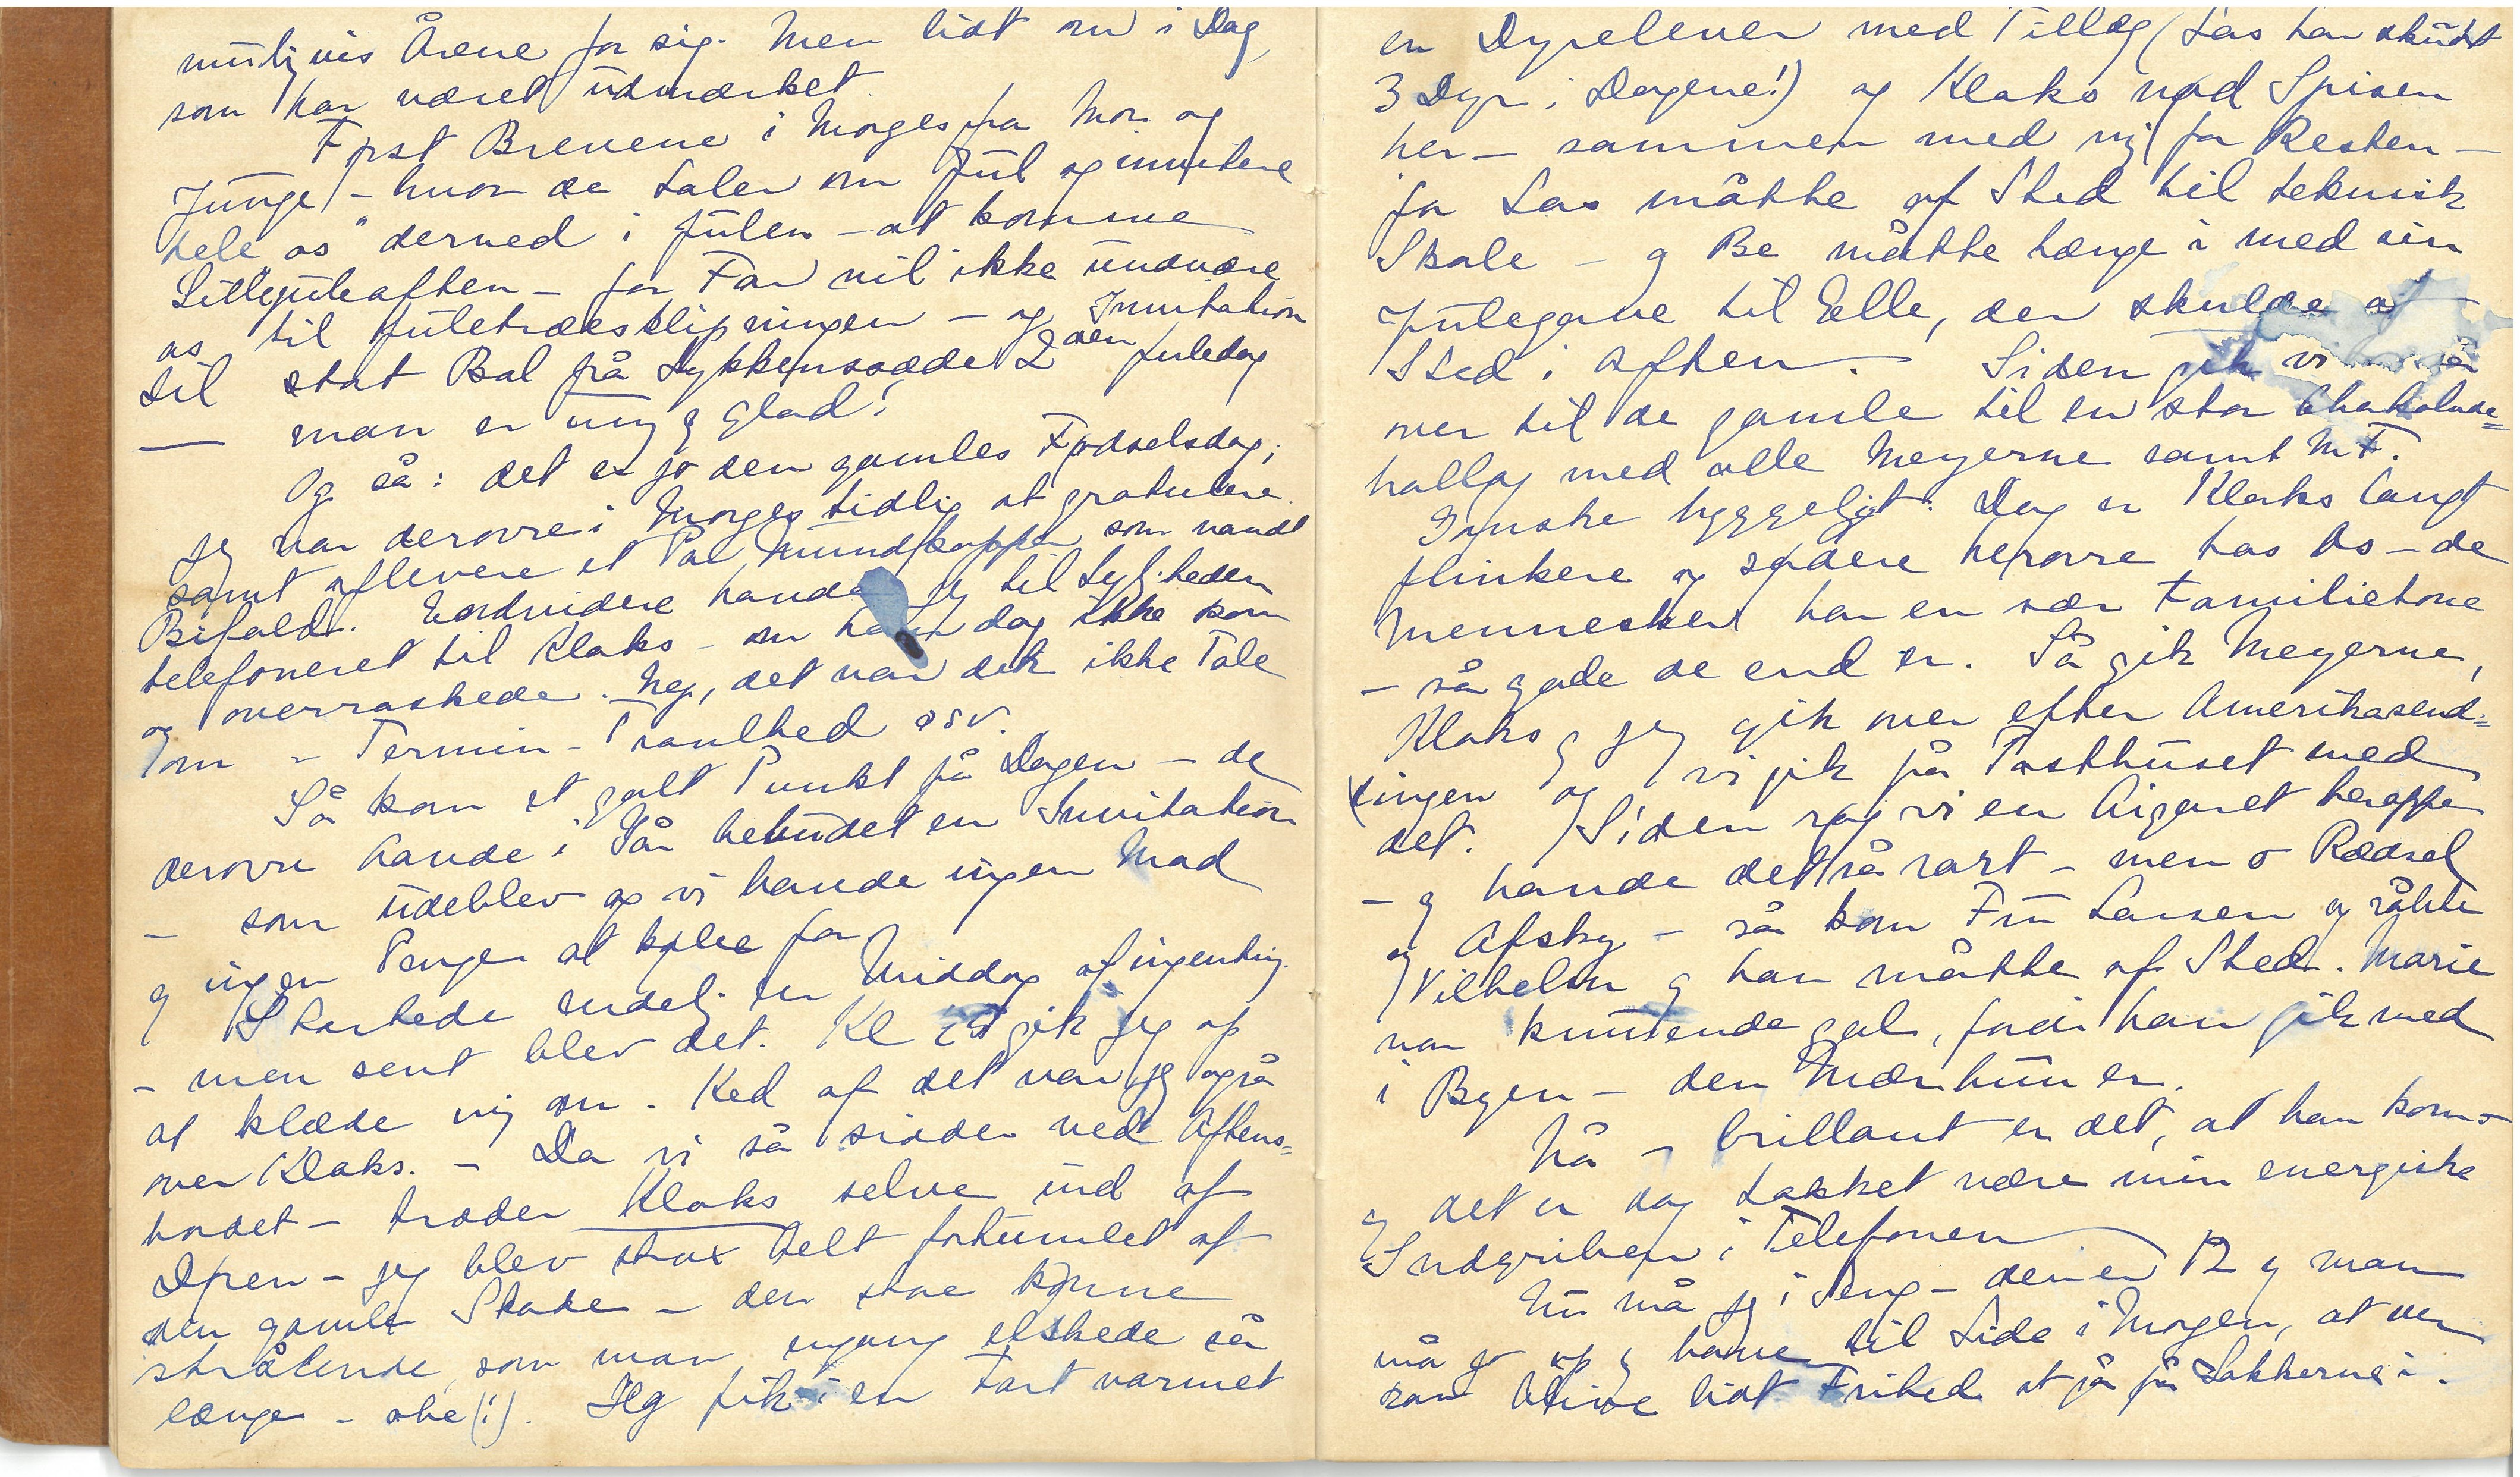 muligvis Årene for sig. Men lidt om i Dag,
som har været udmærket.
Først Brevene i Morges fra Mor og
Junge - hvor de taler om Jul og invitere
hele os" derned i Julen - at komme
Lillejuleaften - for Far vil ikke undvære
os til Juletræesklipningen - og Invitation
til stort Bal på Lykkenssæde 2den Juledag
— man er ung & glad!
Og så: det er jo den gamles Fødselsdag;
jeg var derovre i Morges tidlig at gratulere
samt aflevere et Par Mundkopper som vandt
Bifald. Endvidere havde jeg til Lejligheden
telefoneret til Klaks - om han dog ikke kom
og overraskede. Nej, det var der ikke Tale
om - Termin - Travlhed osv.
Så kom et galt Punkt på Dagen - de
derovre havde i Går bebudet en Invitation
- som udeblev og vi havde ingen Mad
& ingen Penge at købe for
Startede endelig en Middag af ingenting.
- men sent blev det. Kl gik jeg op
at klæde mig om. Ked af det var jeg også
over Klaks. - Da vi så sidder ved Aftens=
bordet - træder Klaks selve ind af
Døren - jeg blev strax helt fortumlet af
den gamle Skade - den store kønne
strålende, som man engang elskede så
længe - ohe(!). Jeg fik i en Fart varmet
en Dyrelever med Tillæg (Las har skudt
3 Dyr i Dagene!) og Klaks nød Spisen
her - sammen med mig for Resten -
for Las måtte af Sted til teknisk
Skole - & Be måtte hænge i med sin
Julegave til Elle, der skulde af
Sted i Aften. Siden gik vi
over til de gamle til en stor Chokolade=
halløj med alle Meyerne samt M.F.
Ganske hyggeligt. Dog er Klaks langt
flinkere og sødere herovre hos Os - de
Mennesker har en sær Familietone
- så gode de end er. Så gik Meyerne,
Klaks & jeg gik over efter Amerikasend=
ingen og vi gik på Posthuset med
det. Siden røg vi en Cigaret heroppe
- & havde det så rart - men o Rædsel
og Afsky - så kom Fru Larsen og råbte
Vilhelm & han måtte af Sted. Marie
var knusende gal, fordi han gik med
i Byen - den Mær hun er.
Nå - brillant er det, at han kom -
& det er dog takket være min energiske
Indgriben i Telefonen
Nu må jeg i Seng - den er 12 & man
må jo op & have til Side i Morgen, at der
kan blive lidt Frihed at gå på Lakkerne i.